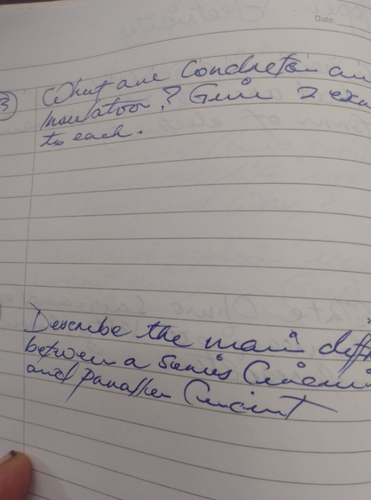 Date:
3 What are Conductor an
Insulator? Give 2 exa
to each.
Describe the main diff
between a Series Circui
and Parallel Circuit